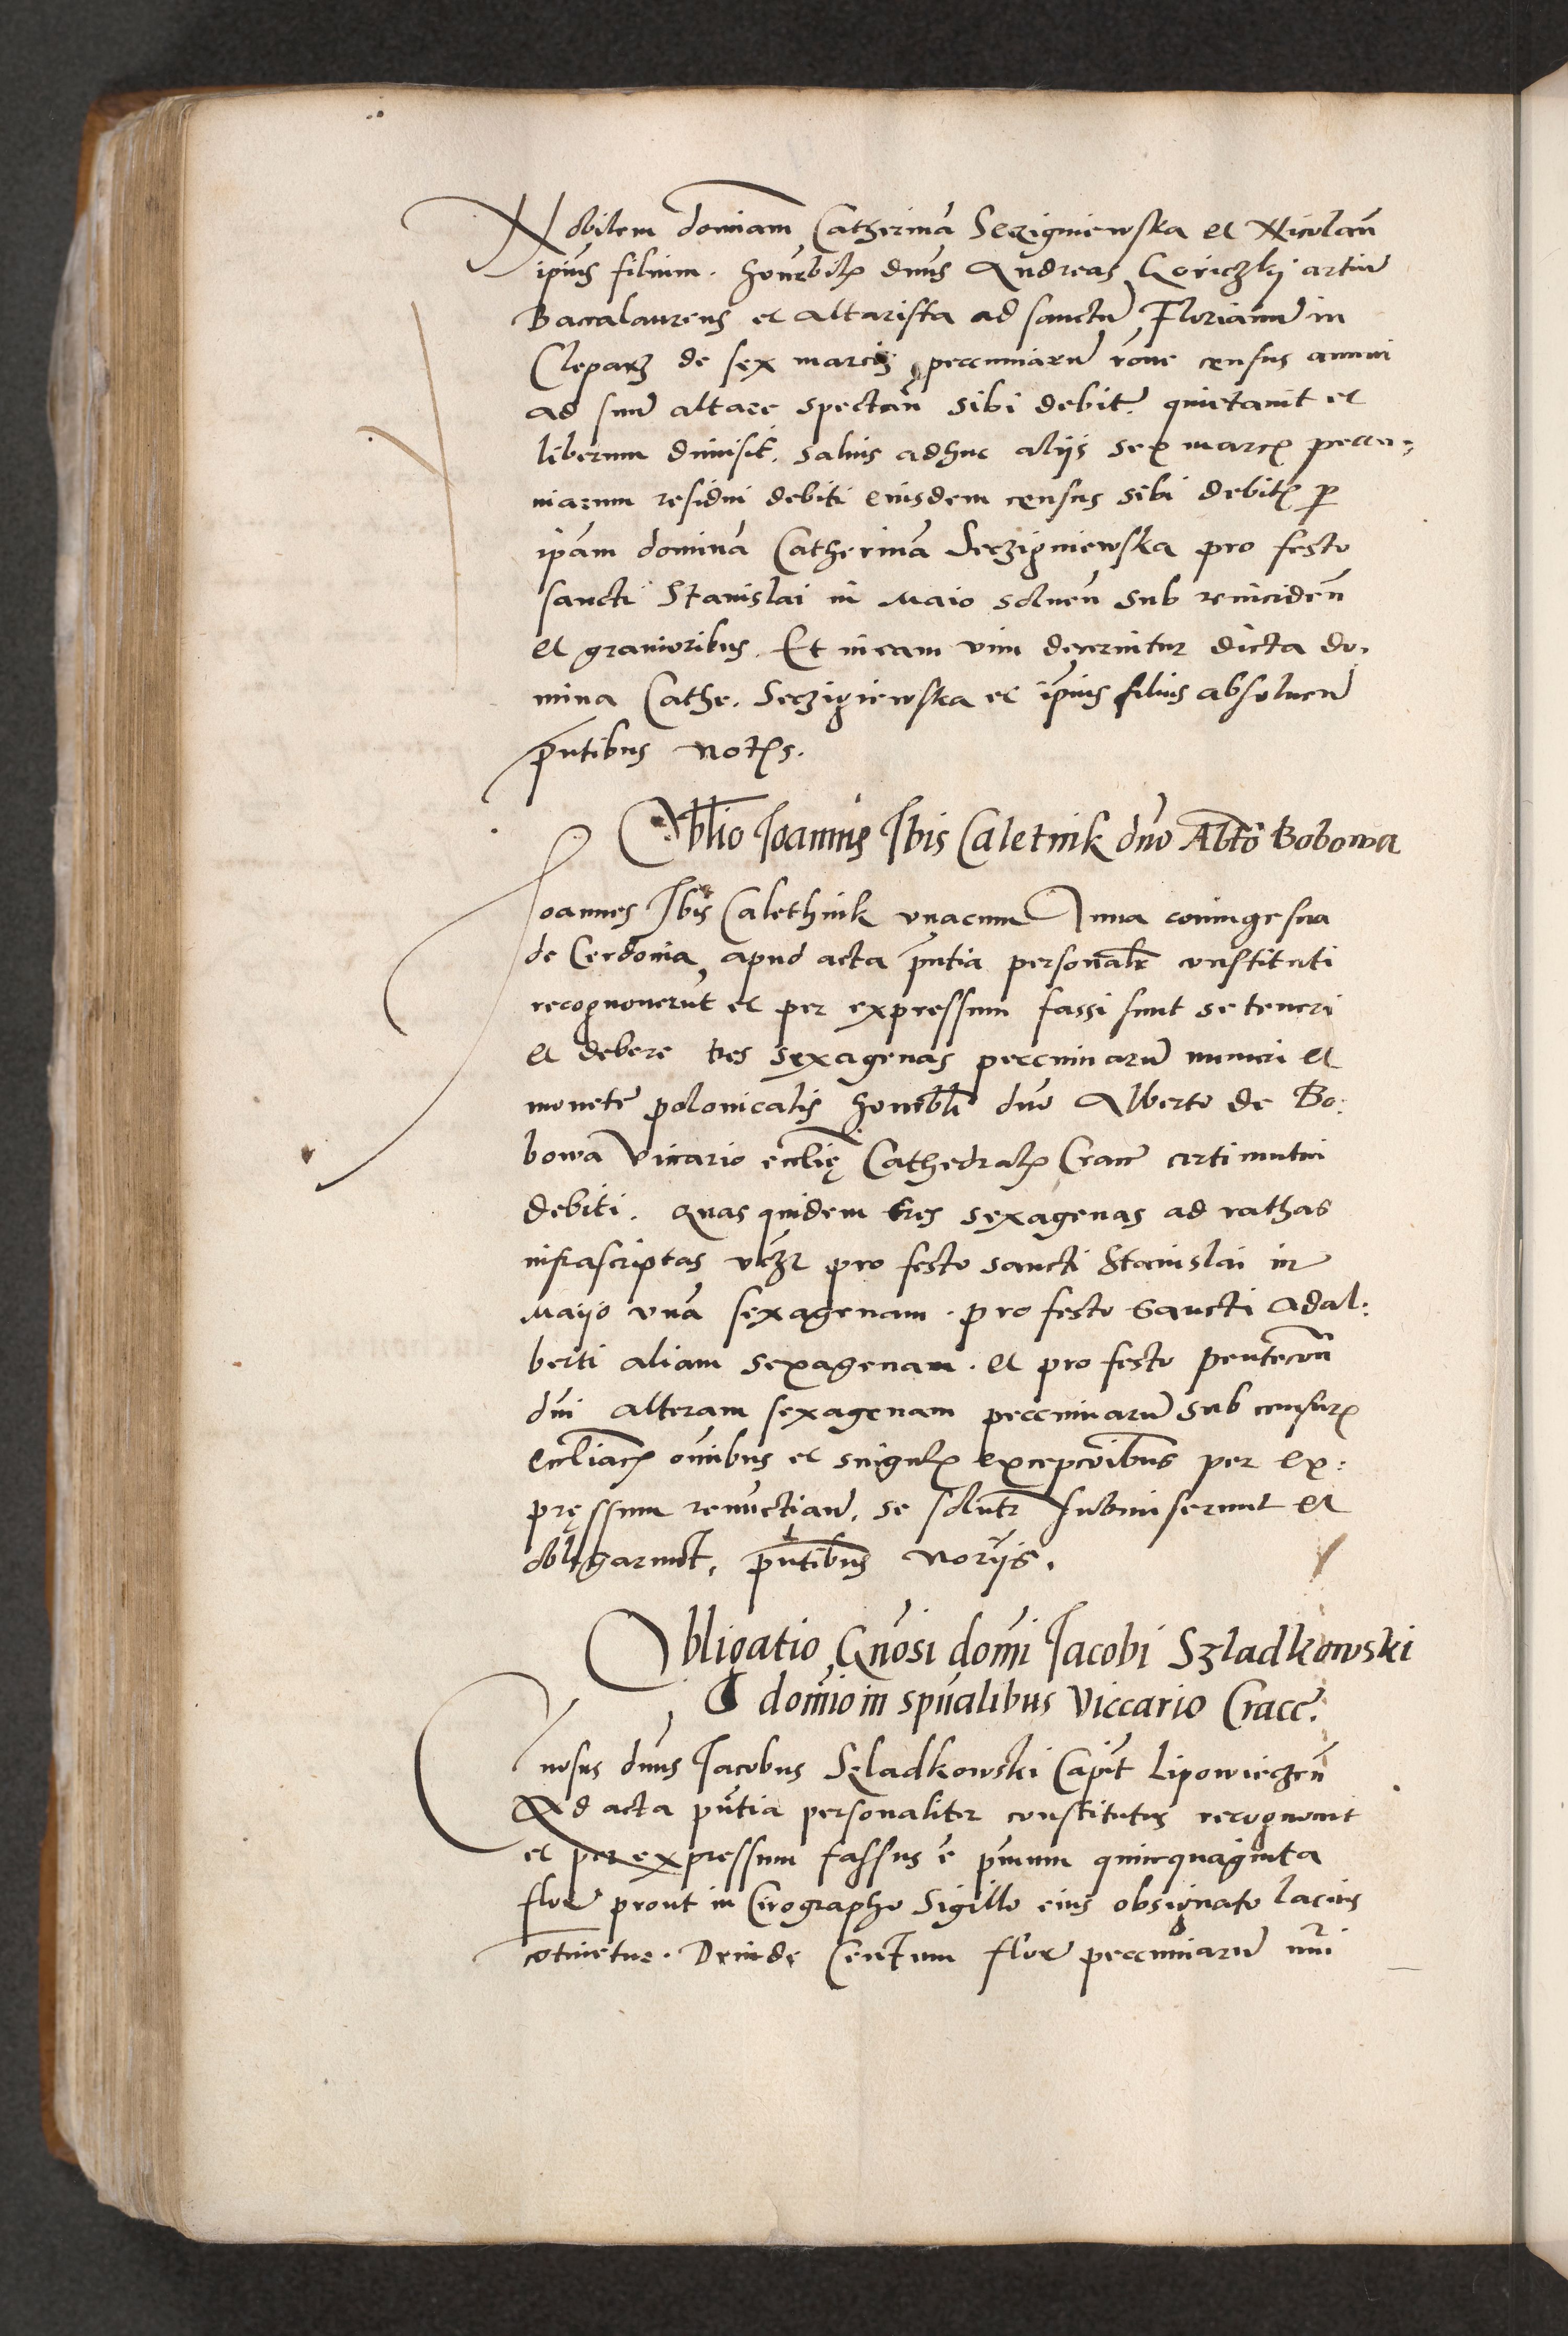 Nobilem dominam Catherinā Seczigniewska et Nicolaū
ipius filium. honorabilis dnus Andreas Goriczkj artiū
Baccalaureus et altarista ad sanctū Florianū in
Cleparz de sex marcis peccuniarū rone census annui
ad suū altare spectan̄ sibi debit. quietavit et
liberum dimisit. salvis adhuc aliis sex marcis peccu-
niarum residui debiti eiusdem census sibi debitis per
ipam dominā Catherinā Seczigniewska pro festo
sancti Stanislai in Maio soluen̄ sub reinciden̄
et gravioribus. Et in eam vim decernitur dicta do-
mina Cathe. Seczigniewska et ipius filius absoluen̄
pn̄tibus notis.
Oblio Joannis Ibis Caletnik dno Albto Bobowa
Joannes Ibis Calethnik vnacum Anna coniuge sua
de Cerdonia apud acta pn̄tia personalr constituti
recognoverūt et per expressum fassi sunt se teneri
et debere tres sexagenas peccuniarū numeri et
monete polonicalis honorabli dno Alberto de Bo:
bowa Viccario ecclie Cathedralis Cracc certi mutui
debiti. Quas quidem tres sexagenas ad rathas
infrascriptas vczt pro festo sancti Stanislai in
Maijo vnā sexagenam. pro festo Sancti Adal:
berti aliam sexagenam. et pro festo pentecon̄
dni alteram sexagenam peccuniarū sub censuris
eccliacis omibus et singulis exceptionibus per ex:
pressum renuctian̄. se soluter submiserunt et
obligarunt. pn̄tibus noriis.
Obligatio Gnosi domi Jacobi Szladkowski
domio in spūalibus Viccario Cracc.
Gnosus dnus Jacobus Szladkowski Capit Lipowieczen̄
Ad acta pn̄tia personaliter constitutus recognovit
et per expressum fassus ē primum quinquaginta
flor prout in Cirographo Sigillo eius obsignato lacius
cōtinetur. Deinde Centum flor peccuniarū nri